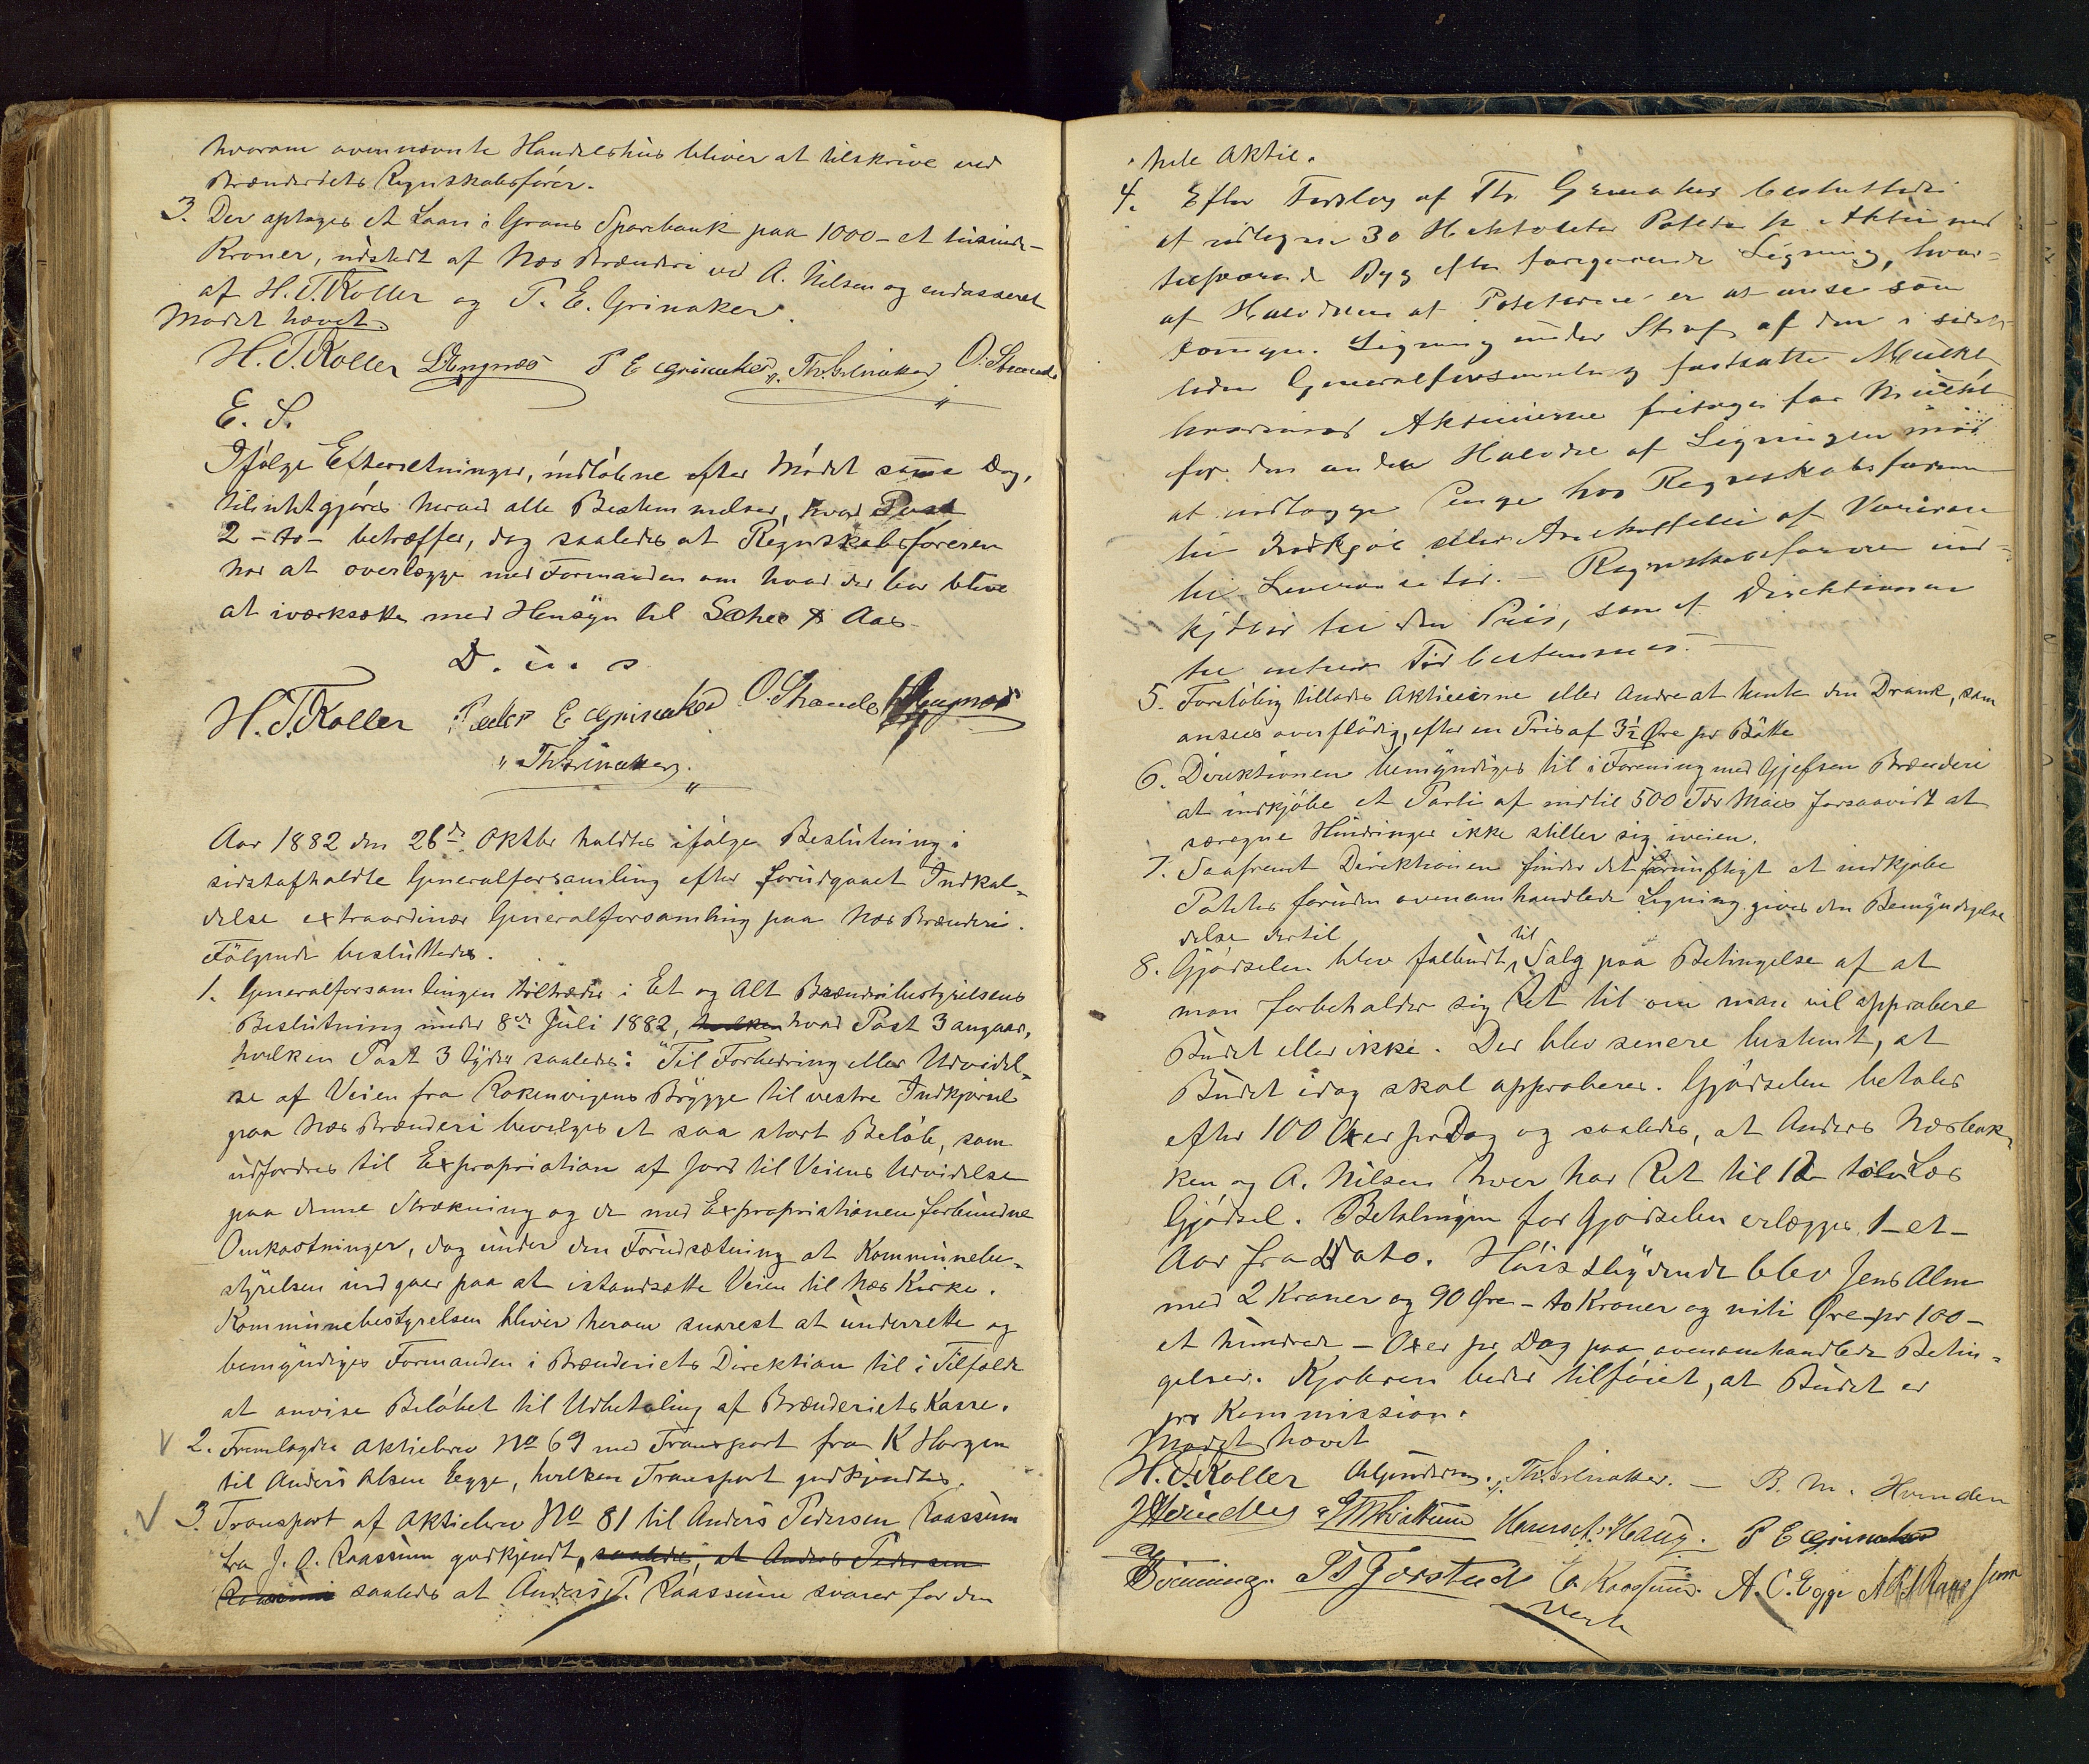 hvorom ovennævnte Handelshus bliver at tilskrive ved
Brænderiets Regnskabsfører.
3. Der optages et Laan i Grans Sparebank paa 1000 - et tusinde -
Kroner, udstedt af Næs Brænderi ved A. Nilsen og endosseret
af H. T. Koller og P. E. Grinaker.
Mødet hævet.
H. T. Koller P E Grinaker Th. Grinaker O. Strande
E. S.
Ifølge Efterretninger, indløbne efter Mødet same Dag,
tilintetgjøres herved alle Bestemmelser, hvad Post
2 - to - betræffer, dog saaledes at Regnskabsføreren
har at overlægge med Formanden om hvad der bør blive
at iværksætte med Hensyn til Sæther & Aas
D. u. s
H. T. Koller Peder E Grinaker O. Strande
Th. Grinaker
Aar 1882 den 26de Oktbr holdtes ifølge Beslutning i
sidstafholdte Generalforsamling efter forudgaaet Indkal-
delse extraordinær Generalforsamling paa Næs Brænderi.
Følgende besluttedes.
1. Generalforsamlingen tiltræder i Et og Alt Brænderibestyrelsens
Beslutning under 8de Juli 1882, hvilken hvad Post 3 angaar,
hvilken Post 3 lyder saaledes: "Til Forbedring eller Udvidel-
se af Veien fra Rokenvigens Brygge til vestre Indkjørsel
paa Næs Brænderi bevilges et saa stort Beløb, som
udfordres til Expropriation af Jord til Veiens Udvidelse
paa denne Strækning og de med Expropriationen forbundne
Omkostninger, dog under den Forudsætning at Kommunebe-
styrelsen indgaar paa at istandsætte Veien til Næs Kirke.
Kommunebestyrelsen bliver herom snarest at underrette og
bemyndiges Formanden i Brænderiets Direktion til i Tilfælde
at anvise Beløbet til Udbetaling af Brænderiets Kasse.
2. Fremlagdes Aktiebrev No 69 med Transport fra K Horgen
til Anders Olsen Egge, hvilken Transport godkjendtes.
3. Transport af Aktiebrev No 81 til Anders Pedersen Raassum
fra J. A. Raassum godkjendt, saaledes, at Anders Pedersen
Raassum saaledes at Anders P. Raassum svarer for den
hele Aktie.
4. Efter Forslag af Th. Grinaker besluttedes
at udligne 30 Hektoliter Poteter pr Aktie med
tilsvarende Byg efter foregaaende Ligning, hvor-
af Halvdelen af Poteterne er at anse som
tvungen Ligning under Straf af den i sidst-
leden Generalforsamling fastsatte Mulkt
hvorimod Aktieierne fritages for Mulkt
for den anden Halvdel af Ligningen mod
at indlægge Penge hos Regnskabsføreren
til Indkjøb eller Anskaffelse af Varerne
til Leverancetid. - Regnskabsføreren ind-
kjøber til den Pris, som af Direktionen
til enhver Tid bestemmes. -
5. Foreløbig tillades Aktieeierne eller Andre at hente den Drank, som
ansees overflødig, efter en Pris af 3½ Øre pr Bøtte
6. Direktionen bemyndiges til i Forening med Gjefsen Brænderi
at indkjøbe et Parti af indtil 500 Tdr Mais forsaavidt at
særegne Hindringer ikke stiller sig iveien.
7. Saafremt Direktionen finder det fornuftigt at indkjøbe
Poteter foruden ovenomhandlede Ligning gives den Bemyndigelse
delse dertil
8. Gjødselen blev falbudt til Salg paa Betingelse af at
man forbeholder sig Ret til om man vil approbere
Budet eller ikke. Der blev senere bestemt, at
Budet idag skal approberes. Gjødselen betales
efter 100 Oxer pr Dag og saaledes, at Anders Næsbak-
ken og A. Nilsen hver har Ret til 12 tolv Læs
Gjødsel. Betalingen for Gjødselen erlægges 1 - et -
Aar fra Dato. Høistbydende blev Jens Alm
med 2 Kroner og 90 Øre - to Kroner og niti Øre - pr 100 -
et hundrede - Oxer pr Dag paa ovenomhandlede Betin-
gelser. Kjøberen beder tilføiet, at Budet er
pr Kommission.
Mødet hævet
H. T. Koller Th. Grinaker. - B. M. Hvinden
Hans A. Haug. P E Grinaker
E. Raassum. A. O. Egge